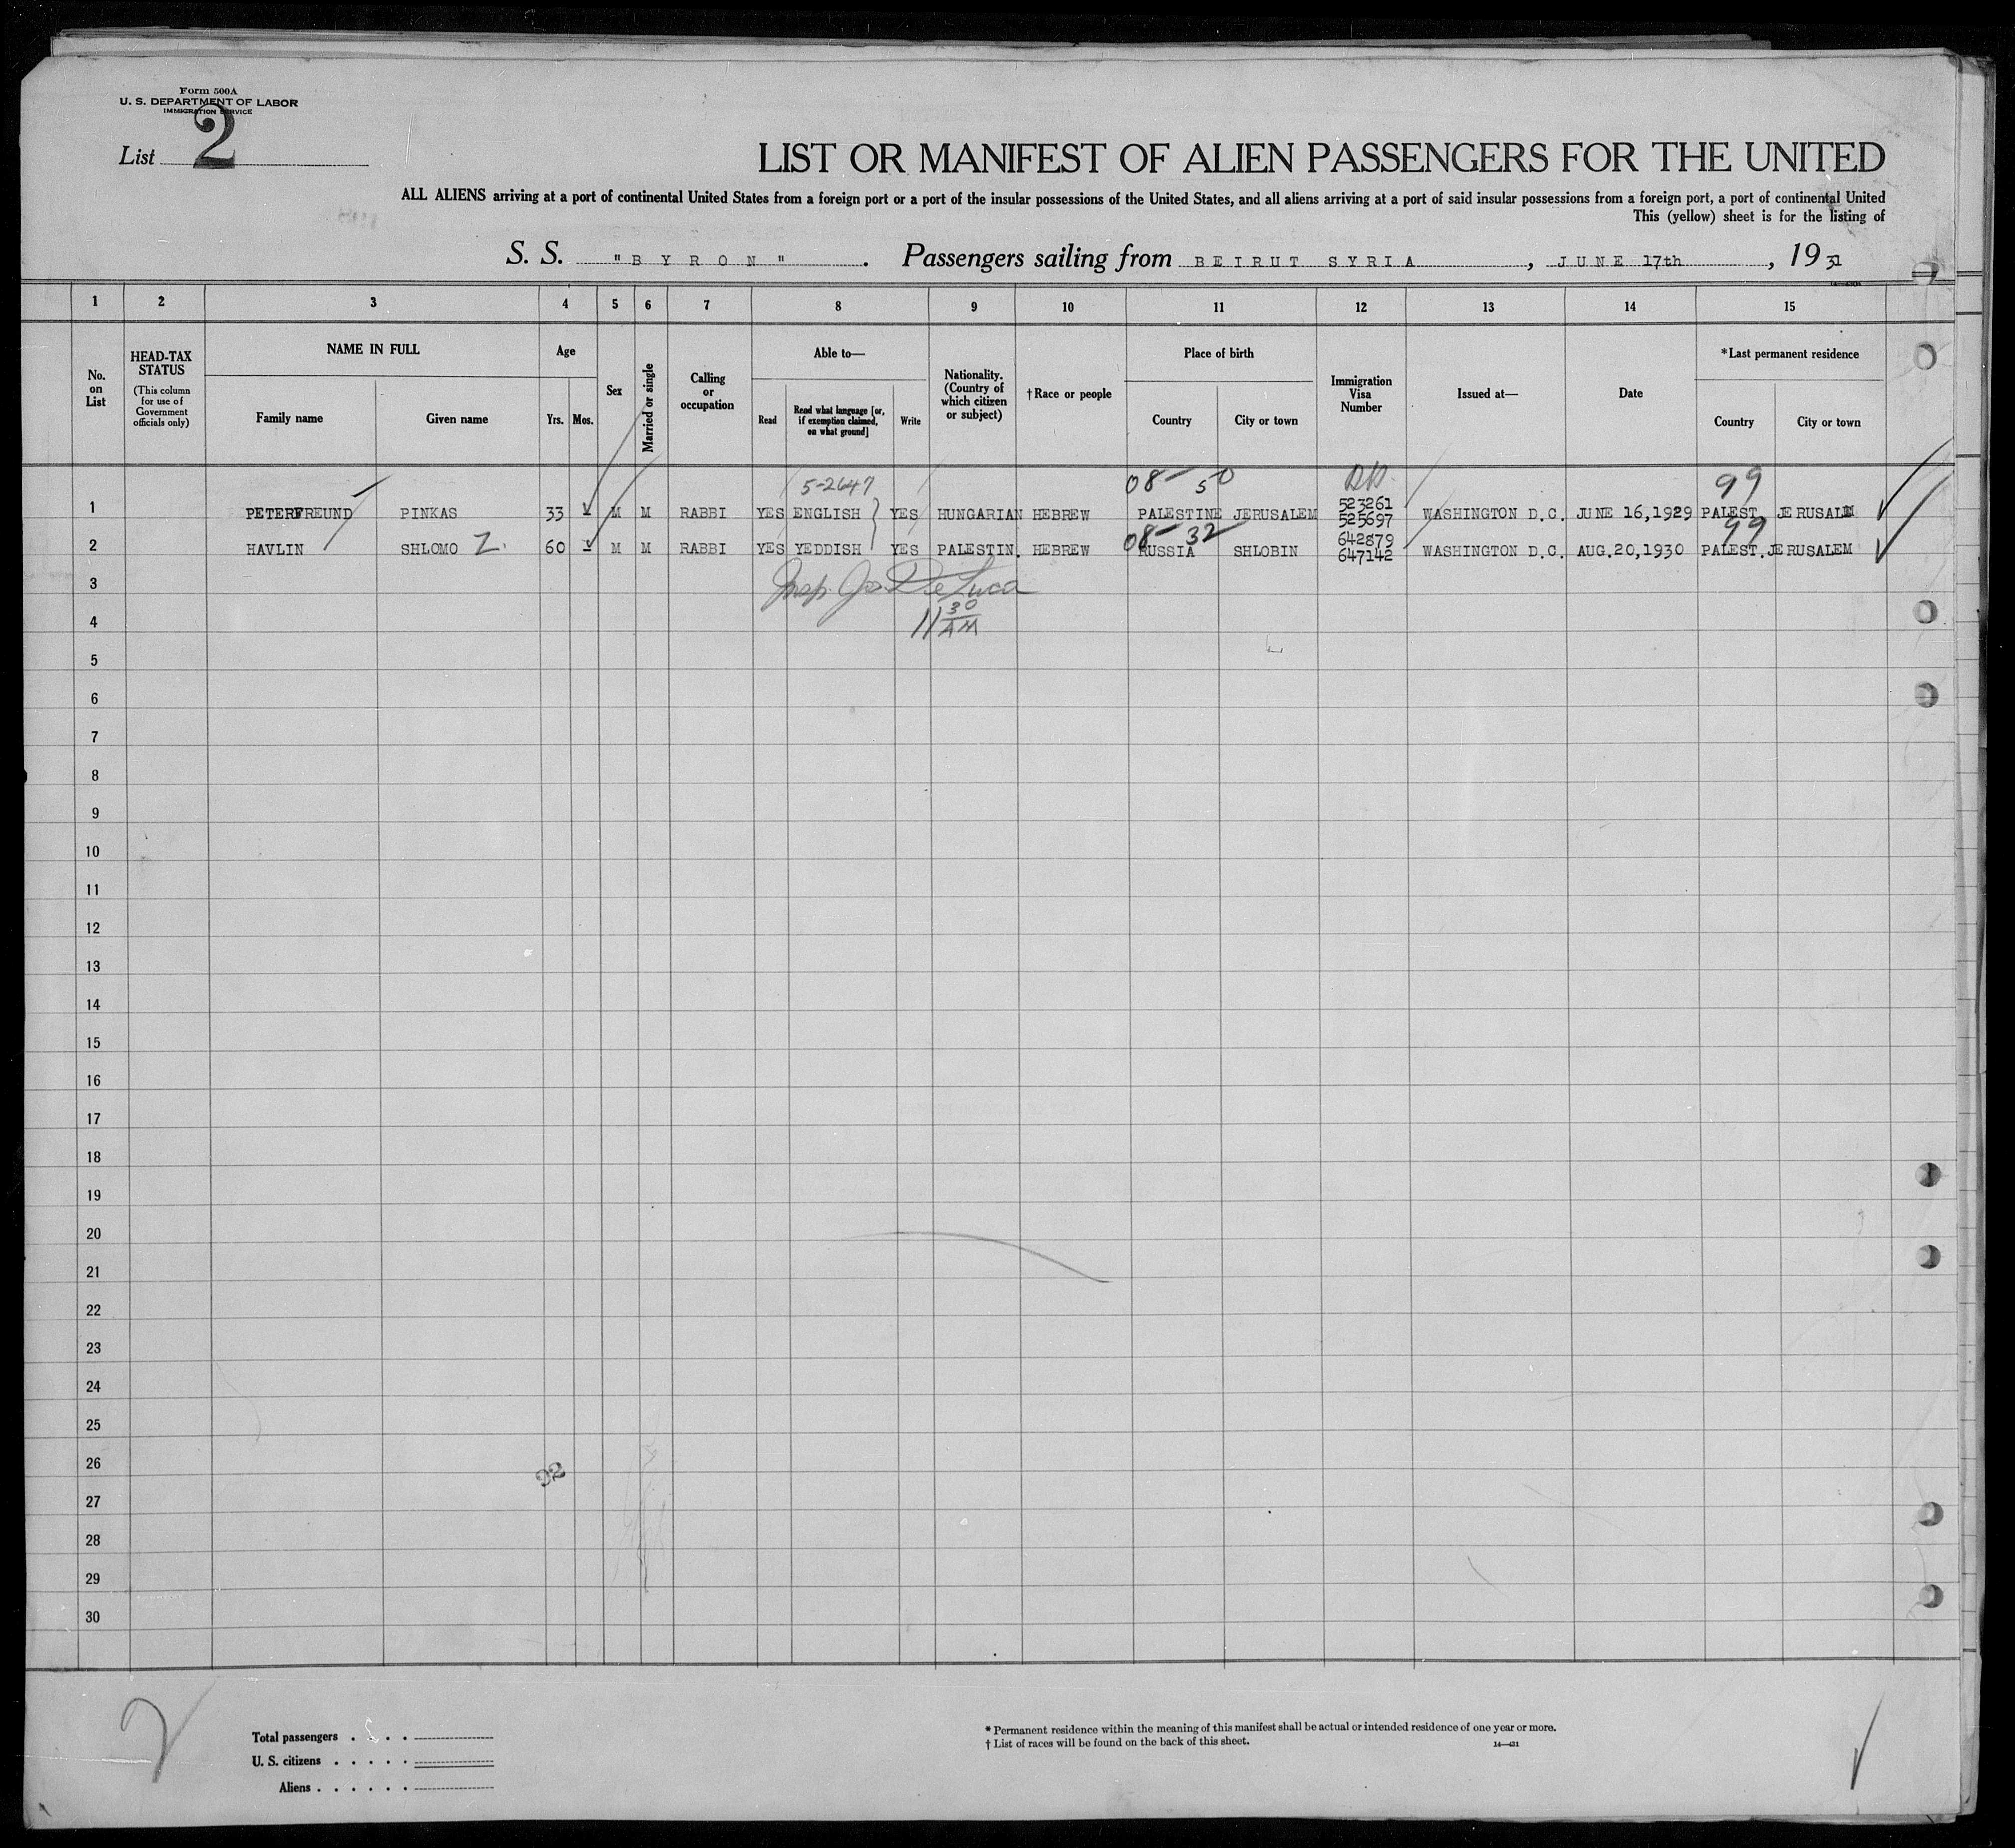 Form 500A
U. S. DEPARTMENT OF LABOR
IMMIGRATION SERVICE
List 2
LIST OR MANIFEST OF ALIEN PASSENGERS FOR THE UNITED
ALL ALIENS arriving at a port of continental United States from a foreign port or a port of the insular possessions of the United States, and all aliens arriving at a port of said insular possessions from a foreign port, a port of continental United
This (yellow) sheet is for the listing of
S. S. "BYRON". Passengers sailing from BEIRUT SYRIA, JUNE 17th, 1931
1 2 3 4 5 6 7 8 9 10 11 12 13 14 15
No. on List
HEAD-TAX STATUS
(This column for use of Government officials only)
NAME IN FULL
Family name Given name
Age
Yrs. Mos.
Sex
Married or single
Calling or occupation
Able to—
Read
Read what language [or, if exemption claimed, on what ground]
Write
Nationality. (Country of which citizen or subject)
†Race or people
Place of birth
Country City or town
Immigration Visa Number
Issued at—
Date
*Last permanent residence
Country City or town
5-2647 08-50 99
1 PETERFREUND PINKAS 33 M M RABBI YES ENGLISH YES HUNGARIAN HEBREW PALESTINE JERUSALEM 523261 525697 WASHINGTON D.C. JUNE 16,1929 PALEST. JERUSALM
08-32 99
2 HAVLIN SHLOMO Z. 60 M M RABBI YES YEDDISH YES PALESTIN. HEBREW RUSSIA SHLOBIN 642879 647142 WASHINGTON D.C. AUG.20,1930 PALEST. JERUSALEM
3 Insp. Jos. De Luca
4 11 30 AM
5
6
7
8
9
10
11
12
13
14
15
16
17
18
19
20
21
22
23
24
25
26
92
27
28
29
30
2
Total passengers
U. S. citizens
Aliens
* Permanent residence within the meaning of this manifest shall be actual or intended residence of one year or more.
† List of races will be found on the back of this sheet.
14—431